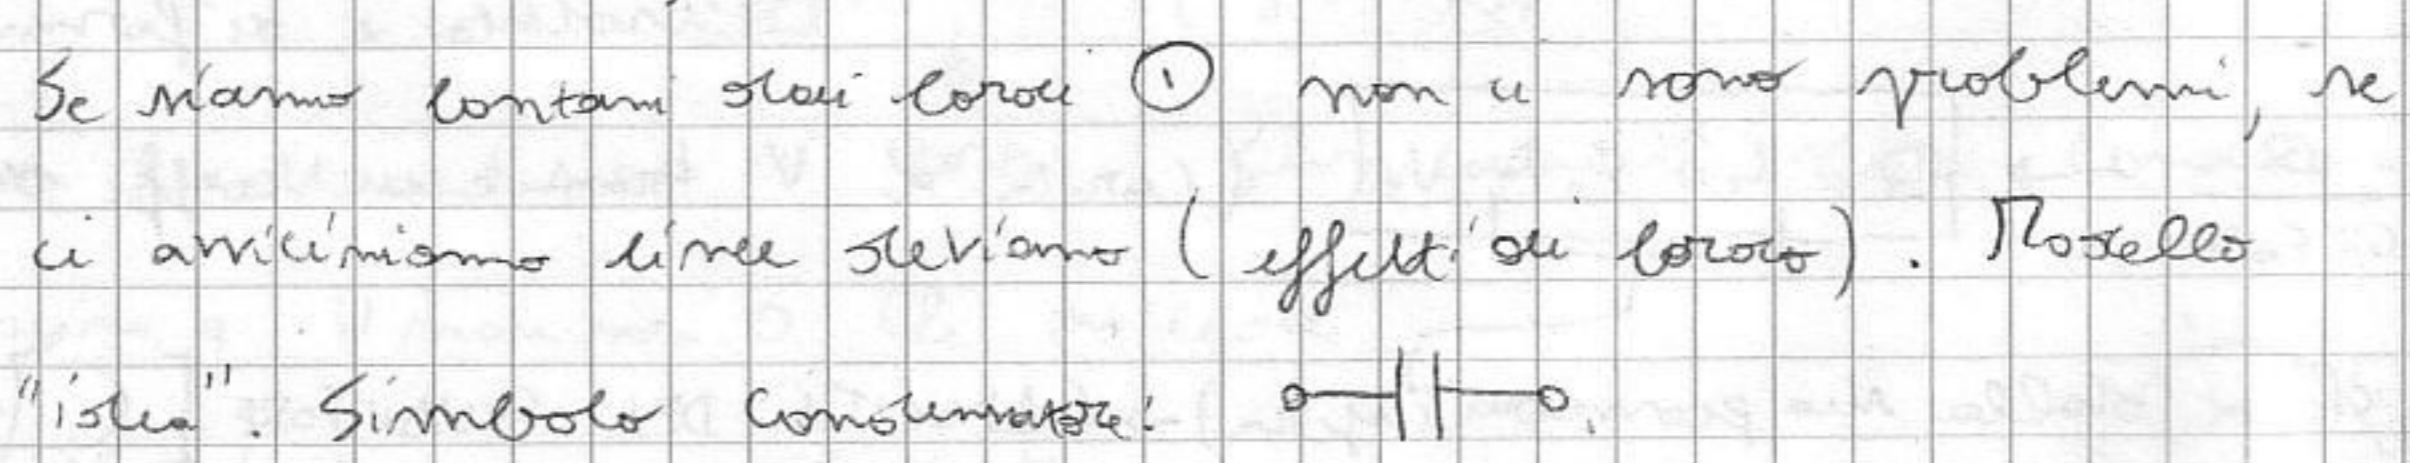 Se siamo lontani dai bordi ① non ci sono problemi, se
ci avviciniamo linee deviano (effetti di bordo). Modello
"idea". Simbolo condensatore: